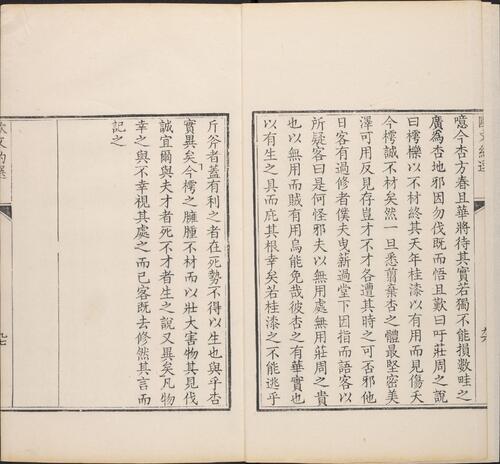 噫今杏方春且華將待其實若獨不能損數畦之
廣為杏地邪因勿伐既而悟且歎曰吁莊周之說
曰樗櫟以不材終其天年桂漆以有用而見傷夭
今樗誠不材矣然一旦悉翦棄杏之體最堅密美
澤可用反見存豈才不才各遭其時之可否邪他
日客有過修者僕夫曳薪過堂下因指而語客以
所疑客曰是何怪邪夫以無用處無用莊周之貴
也以無用而賊有用烏能免哉彼杏之有華實也
以有生之具而庇其根幸矣若桂漆之不能逃乎
斤斧者蓋有利之者在死勢不得以生也與乎杏
實異矣今樗之臃腫不材而以壯大害物其見伐
誠宜爾與夫才者死不才者生之說又異矣凡物
幸之與不幸視其處之而已客既去修然其言而
記之